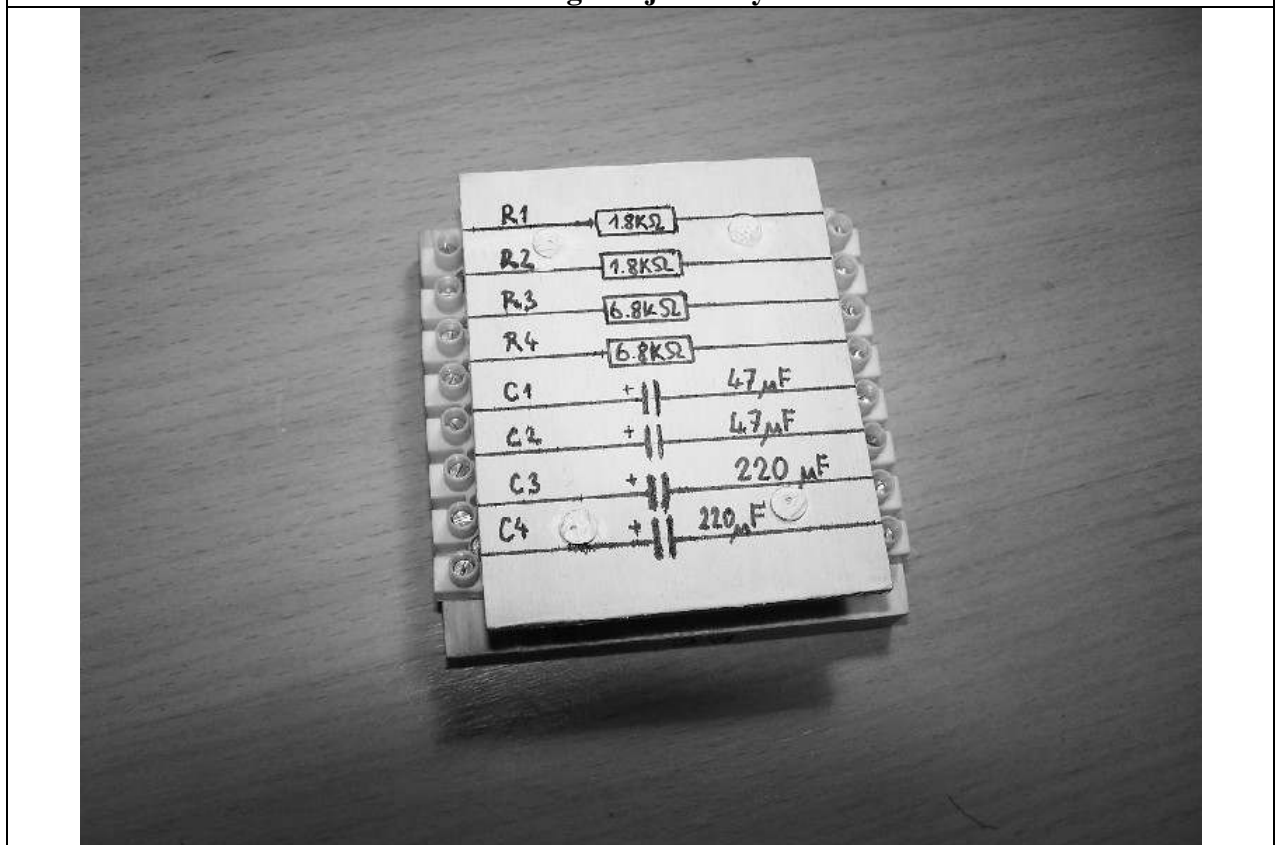 R1 1.8KΩ
R2 1.8KΩ
R3 6.8KΩ
R4 6.8KΩ
C1 + 47μF
C2 + 47μF
C3 + 220 μF
C4 + 220μF